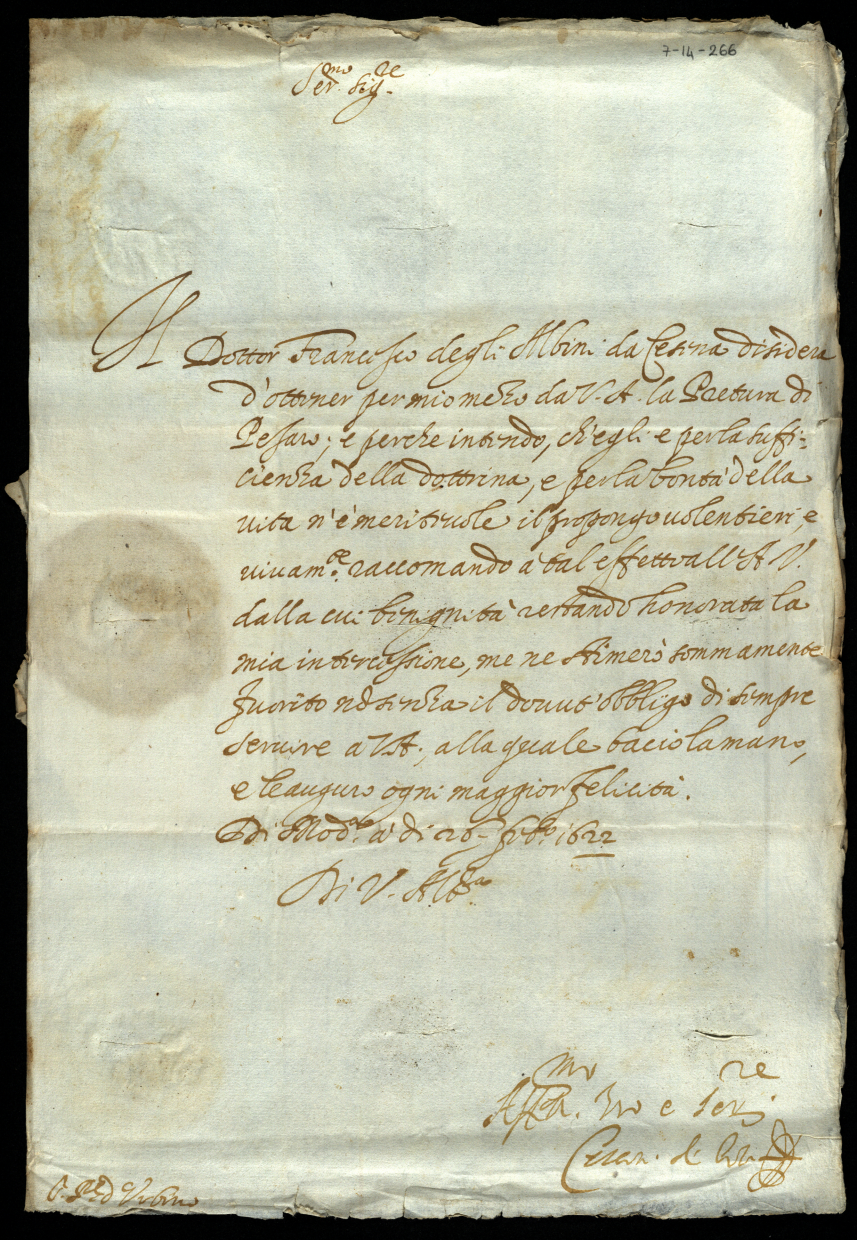 7-14-266
Ser.mo Sig.re
Il Dottor Francesco degli Albini da Cesena disidera
d'ottener per mio mezzo da V. A. la Pretura di
Pesaro; e perche intendo, ch'egli e per la suffi-
cienza della dottrina, e per la bontà della
vita n'è meritevole il propongo volentieri, e
vivam.te raccomando à tal effetto all'A. V.
dalla cui benignità restando honorata la
mia intercessione, me ne stimerò sommamente
favorito nò senza il dovut'obbligo di sempre
servire a V.A., alla quale bacio la mano,
e le auguro ogni maggior felicità.
Di Mod.a à di 26 feb.o 1622
Di V. Alt.a
Aff.mo e Ser.re
Cesare d'Este
S. Urbino